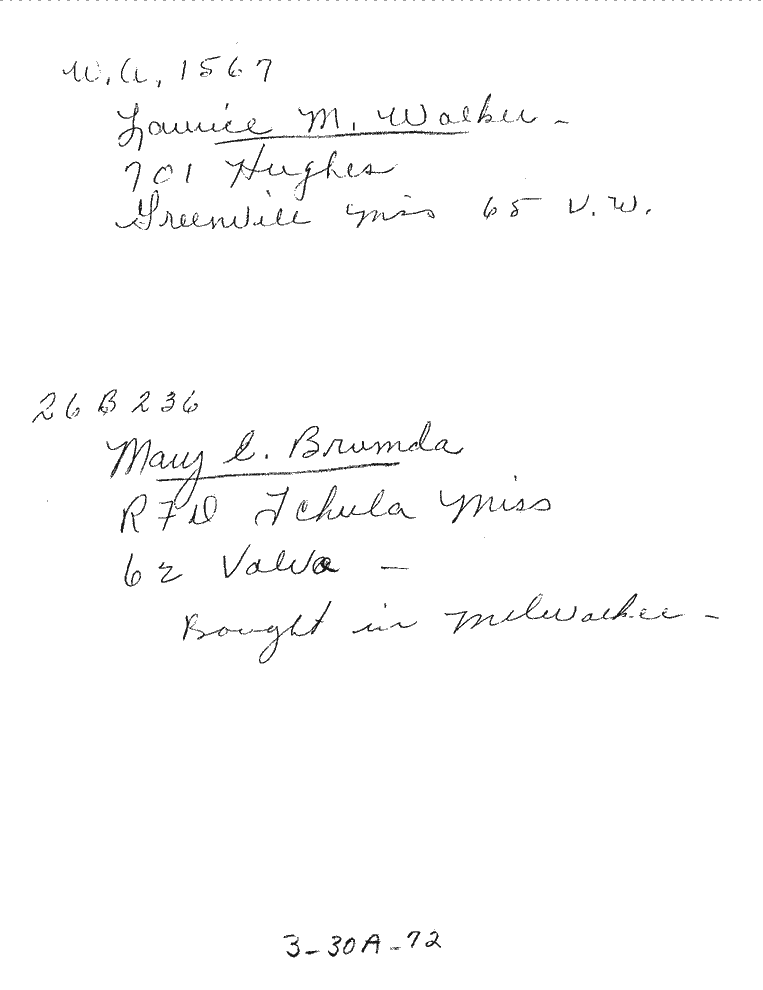 W.A, 1567
Laurice M. Walker -
701 Hughes
Greenville Miss 65 V.W.
26 B 236
Mary E. Brumda
RFD Tchula Miss
62 Valva -
Bought in Milwalkee -
3-30A-72